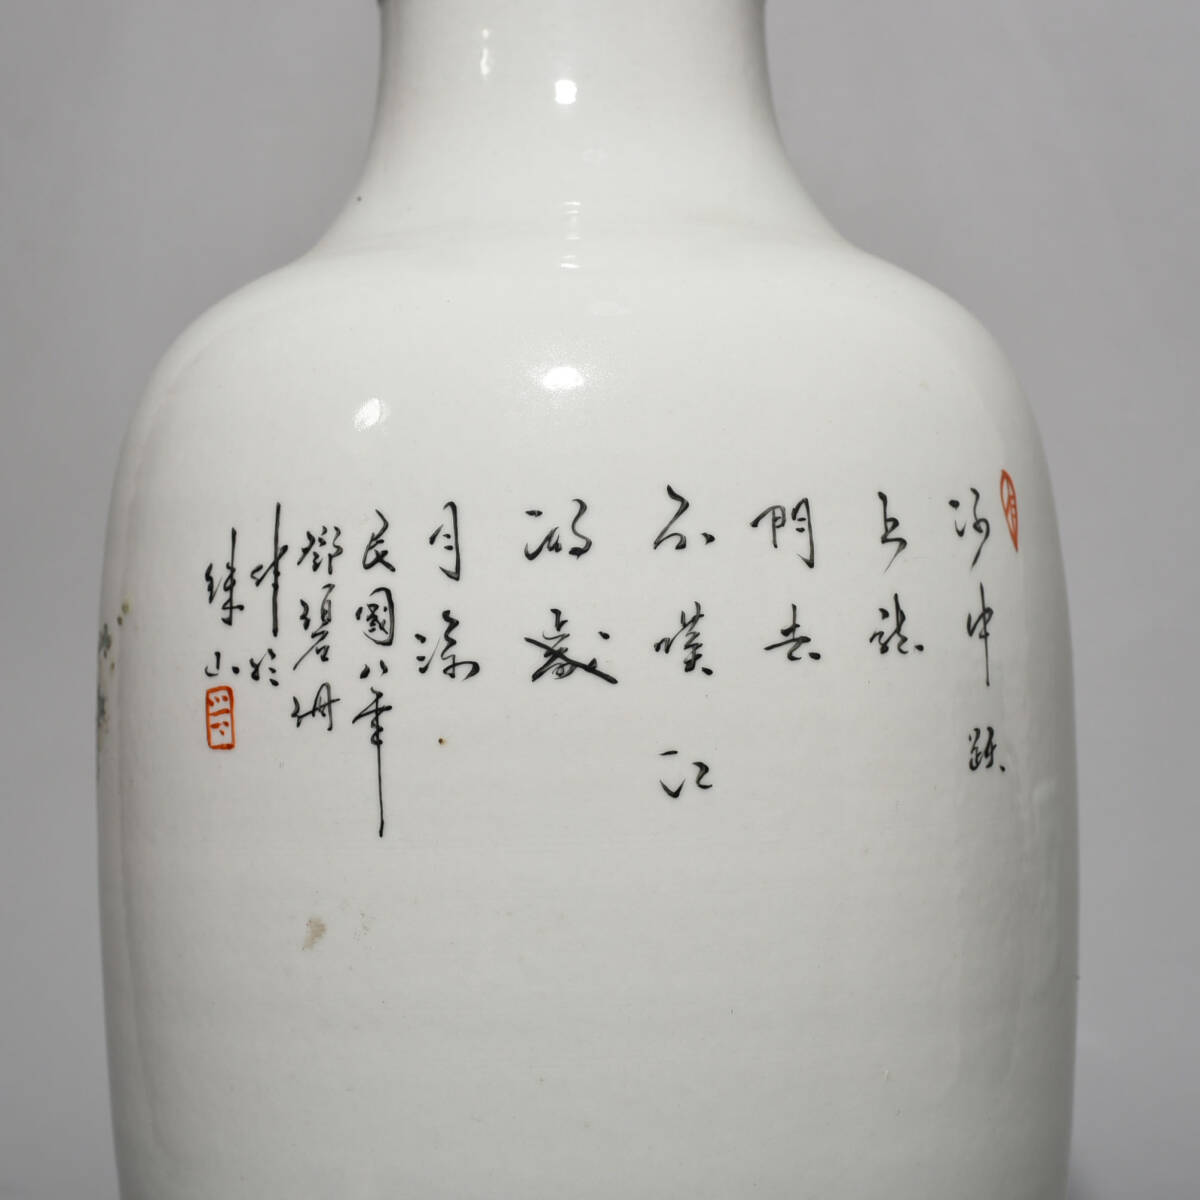 中跃
上龍
門去
不嘆江
湖歲
月深
民國八年
鄧碧珊
作於
珠山